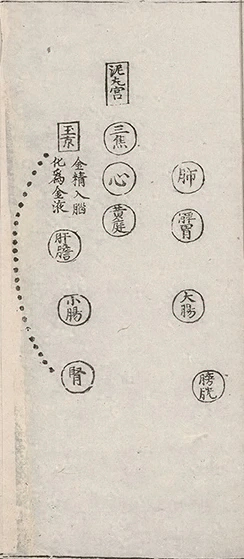 肺
脾胃
大腸
膀胱
泥丸宮
三焦
心
黄庭
玉京
金精入腦
化為金液
肝膽
小腸
腎